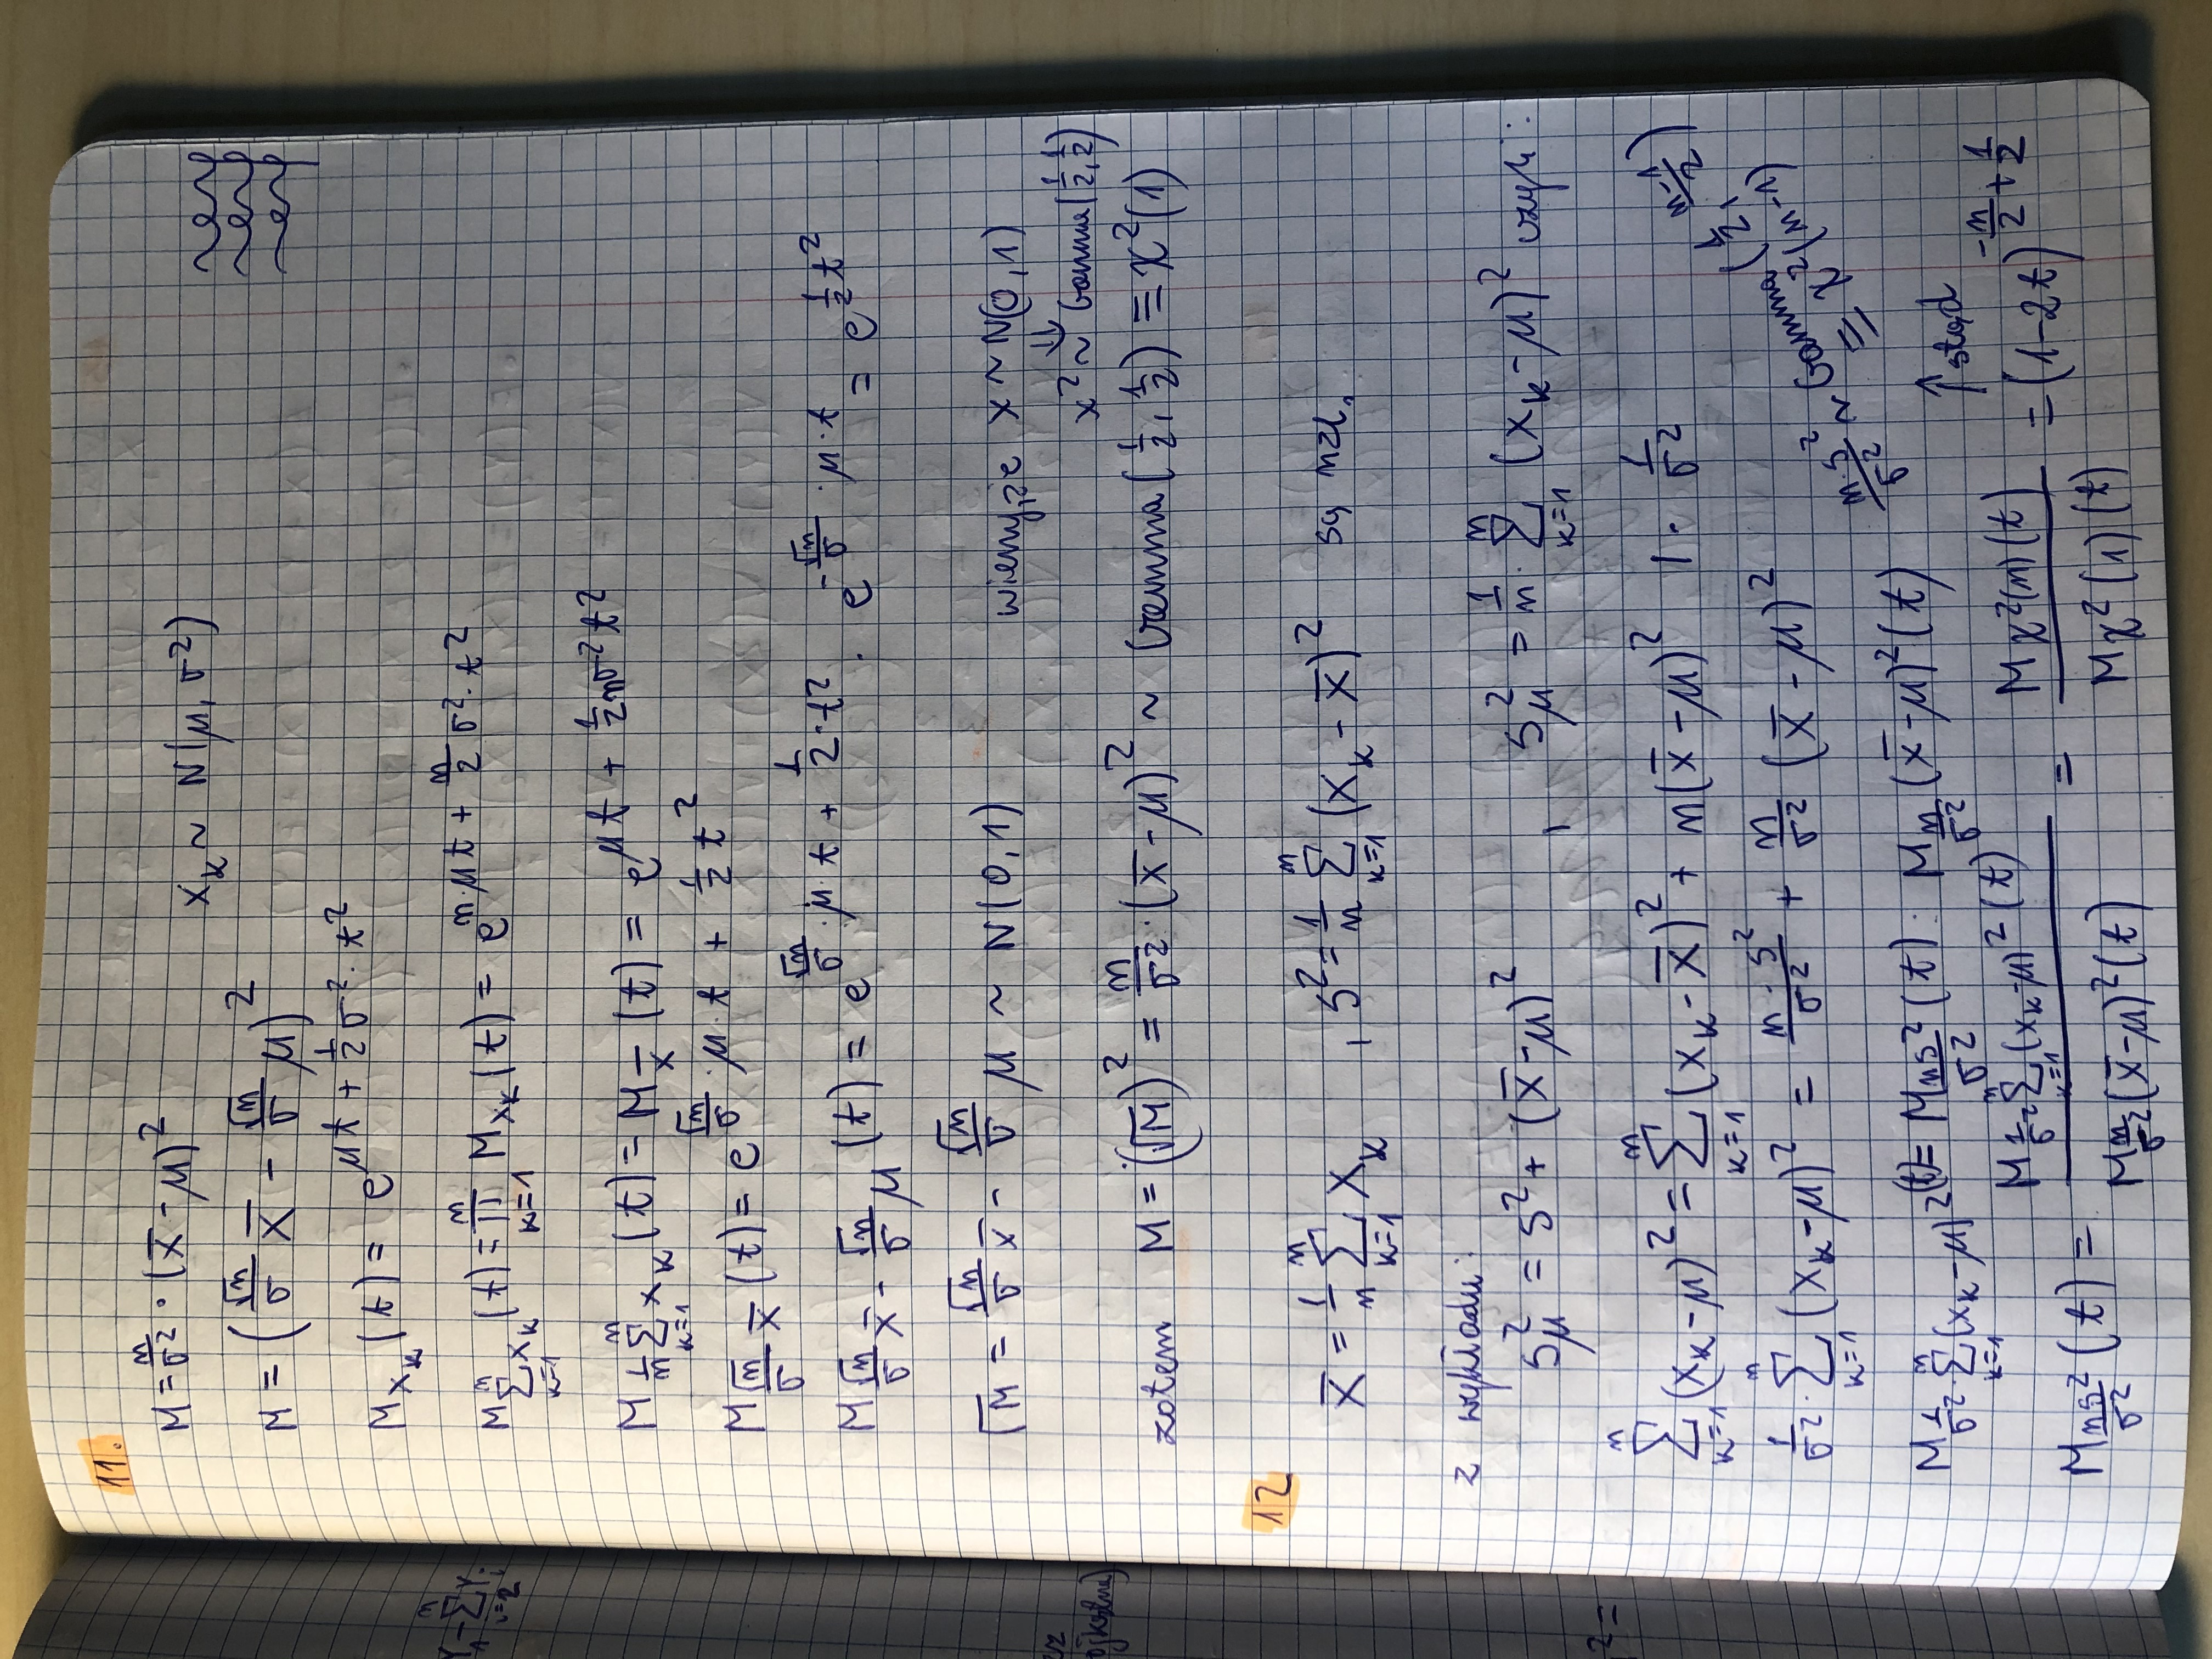 11.
M = n/σ² · (x̄ - μ)²
x_k ~ N(μ, σ²)
M = (√n/σ x̄ - √n/σ μ)²
M_{x_k}(t) = e^{μt + 1/2 σ² · t²}
M_{∑_{k=1}^{n} x_k}(t) = ∏_{k=1}^{n} M_{x_k}(t) = e^{n·μt + n/2 σ² · t²}
M_{1/n ∑_{k=1}^{n} x_k}(t) = M_{x̄}(t) = e^{μt + 1/2 nσ²t²}
M_{√n/σ x̄}(t) = e^{√n/σ · μ · t + 1/2 t²}
M_{√n/σ x̄ - √n/σ μ}(t) = e^{√n/σ · μ · t + 1/2 · t²} · e^{-√n/σ · μ · t} = e^{1/2 t²}
√M = √n/σ x̄ - √n/σ μ ~ N(0,1)
wiemy, że x ~ N(0,1)
⇓
x² ~ Gamma(1/2, 1/2)
zatem M = (√M)² = n/σ² · (x̄ - μ)² ~ Gamma(1/2, 1/2) ≡ χ²(1)
12
x̄ = 1/n ∑_{k=1}^{n} x_k , s² = 1/n ∑_{k=1}^{n} (x_k - x̄)² są nzl.
z wykładu:
s²_μ = s² + (x̄ - μ)² , s²_μ = 1/n · ∑_{k=1}^{n} (x_k - μ)² czyli:
∑_{k=1}^{n} (x_k - μ)² = ∑_{k=1}^{n} (x_k - x̄)² + n(x̄ - μ)² | · 1/σ²
1/σ² · ∑_{k=1}^{n} (x_k - μ)² = n · s²/σ² + n/σ² (x̄ - μ)²
n·s²/σ² ~ Gamma(1/2, n-1/2)
≡ χ²(n-1)
↑ stąd
M_{1/σ² · ∑_{k=1}^{n} (x_k - μ)²}(t) = M_{ns²/σ²}(t) · M_{n/σ² (x̄ - μ)²}(t)
M_{ns²/σ²}(t) = M_{1/σ² ∑_{k=1}^{n} (x_k - μ)²}(t) / M_{n/σ² (x̄ - μ)²}(t) = M_{χ²(n)}(t) / M_{χ²(1)}(t) = (1-2t)^{-n/2 + 1/2}